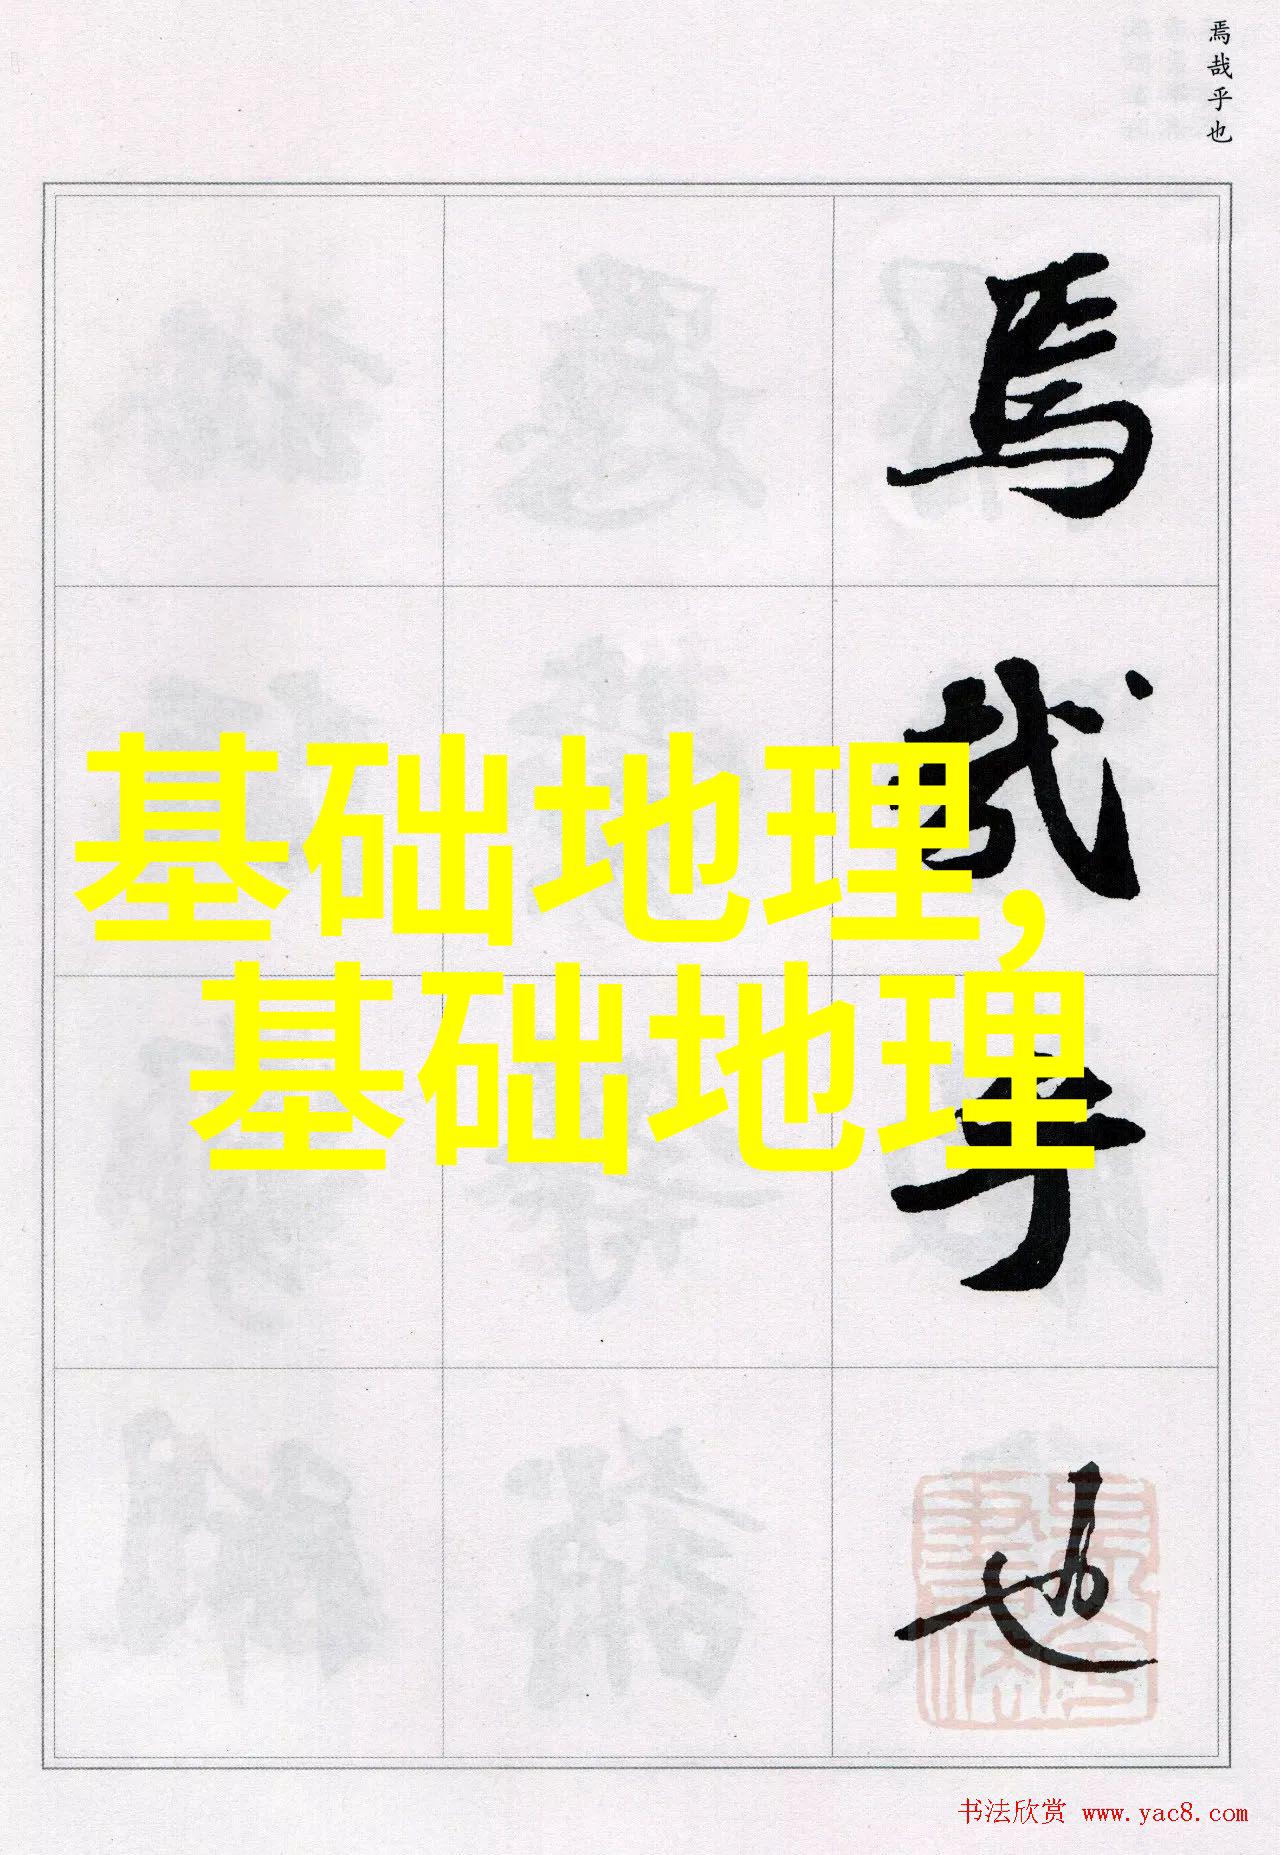 焉哉乎也
焉
哉
乎
也
基础地理,
基础地理
书法欣赏 www.yac8.com